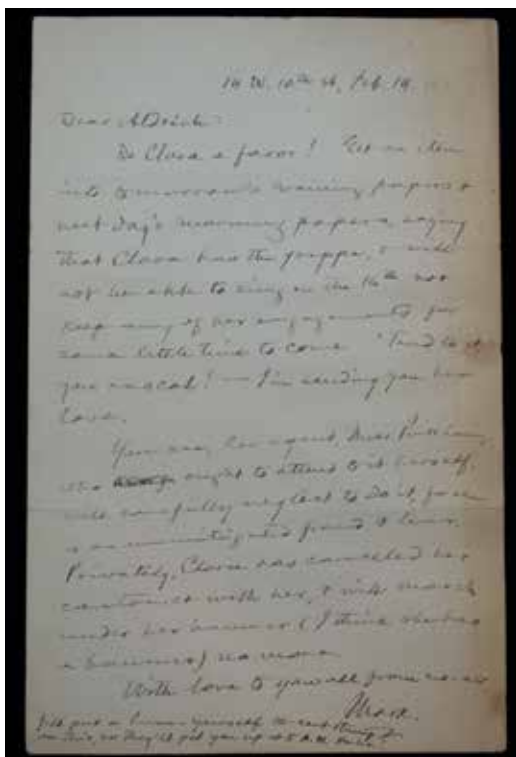 14 W. 10th st, Feb. 14.
Dear Aldrich:
Do Clara a favor! Get an item
into tomorrow's evening papers &
next day's morning papers, saying
that Clara has the grippe, & will
not be able to sing on the 16th nor
keep any of her engagements for
some little time to come. Tend to it
you rascal! — I'm sending you her
love.
You see, her agent, Miss
who ought to attend to it herself,
will carefully neglect to do it, for she
is an unmitigated fraud & liar.
Privately, Clara has canceled her
contract with her, & will march
under her banner (I think she has
a banner) no more.
With love to you all from us all
Mark.